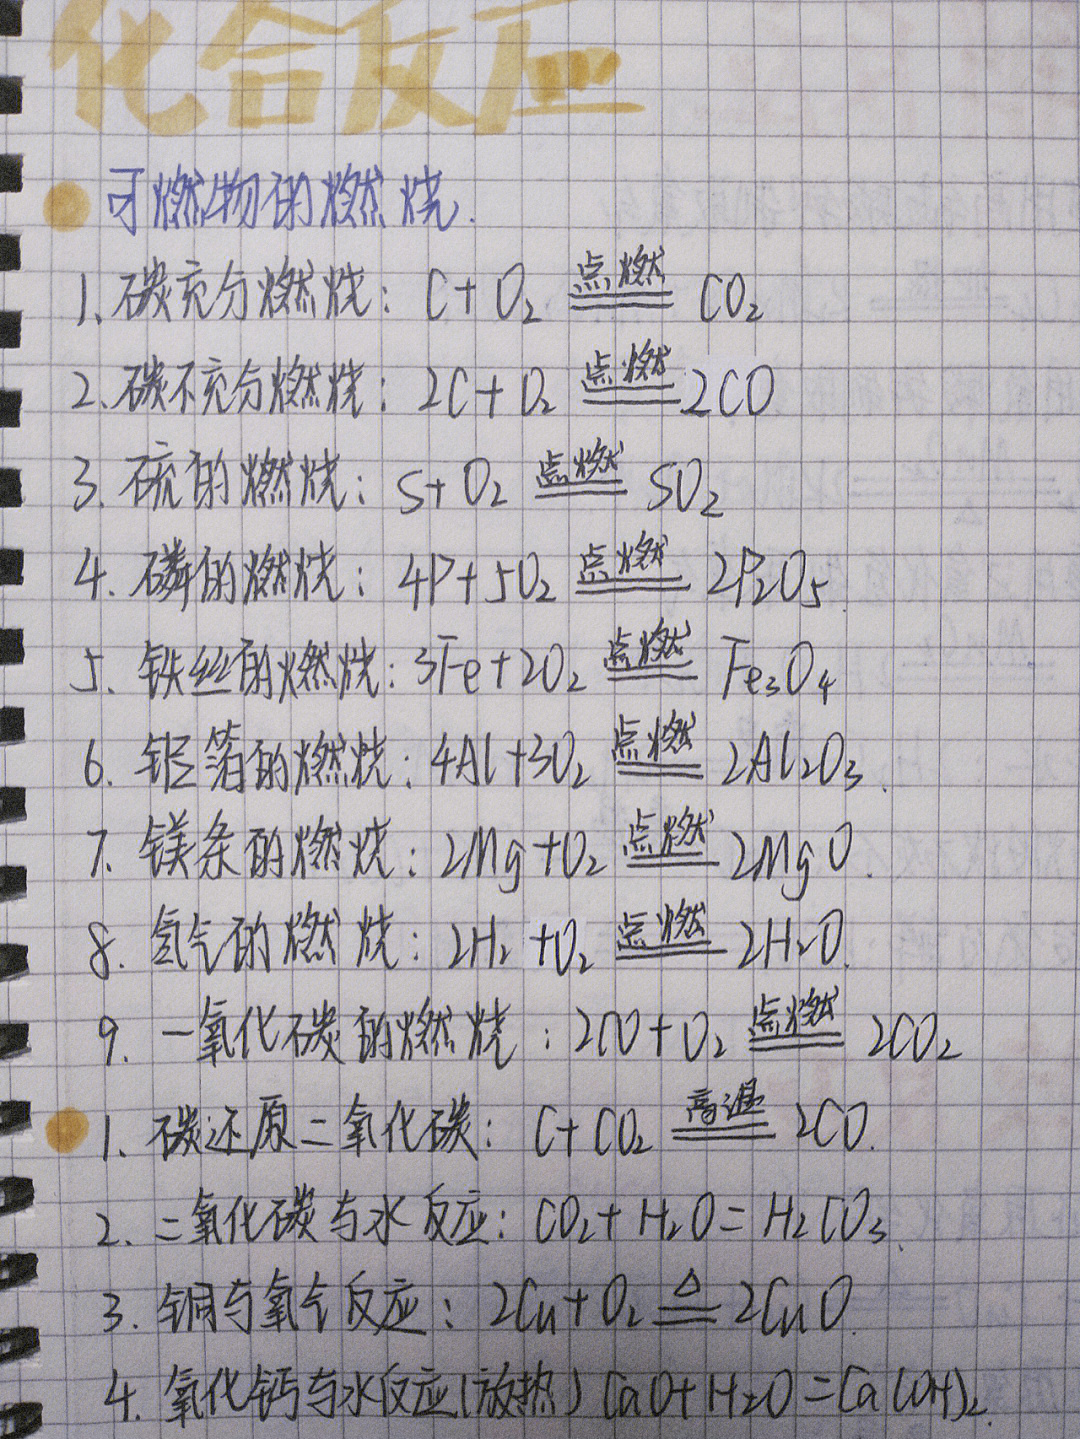 化合反应
可燃物的燃烧.
1、碳充分燃烧: C+O₂ 点燃 CO₂
2、碳不充分燃烧: 2C+O₂ 点燃 2CO
3、硫的燃烧: S+O₂ 点燃 SO₂
4、磷的燃烧: 4P+5O₂ 点燃 2P₂O₅
5、铁丝的燃烧: 3Fe+2O₂ 点燃 Fe₃O₄
6. 铝箔的燃烧: 4Al+3O₂ 点燃 2Al₂O₃.
7. 镁条的燃烧: 2Mg+O₂ 点燃 2MgO.
8. 氢气的燃烧: 2H₂+O₂ 点燃 2H₂O.
9. 一氧化碳的燃烧: 2CO+O₂ 点燃 2CO₂
1. 碳还原二氧化碳: C+CO₂ 高温 2CO.
2. 二氧化碳与水反应: CO₂+H₂O=H₂CO₃.
3. 铜与氧气反应: 2Cu+O₂ △ 2CuO.
4. 氧化钙与水反应(放热) CaO+H₂O=Ca(OH)₂.